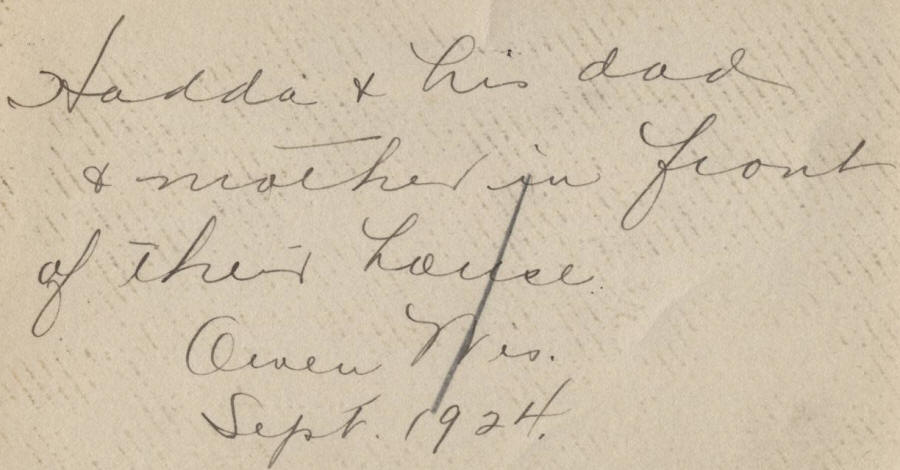 Hadda & his dad
& mother in front
of their house.
Owen Wis.
Sept. 1924.